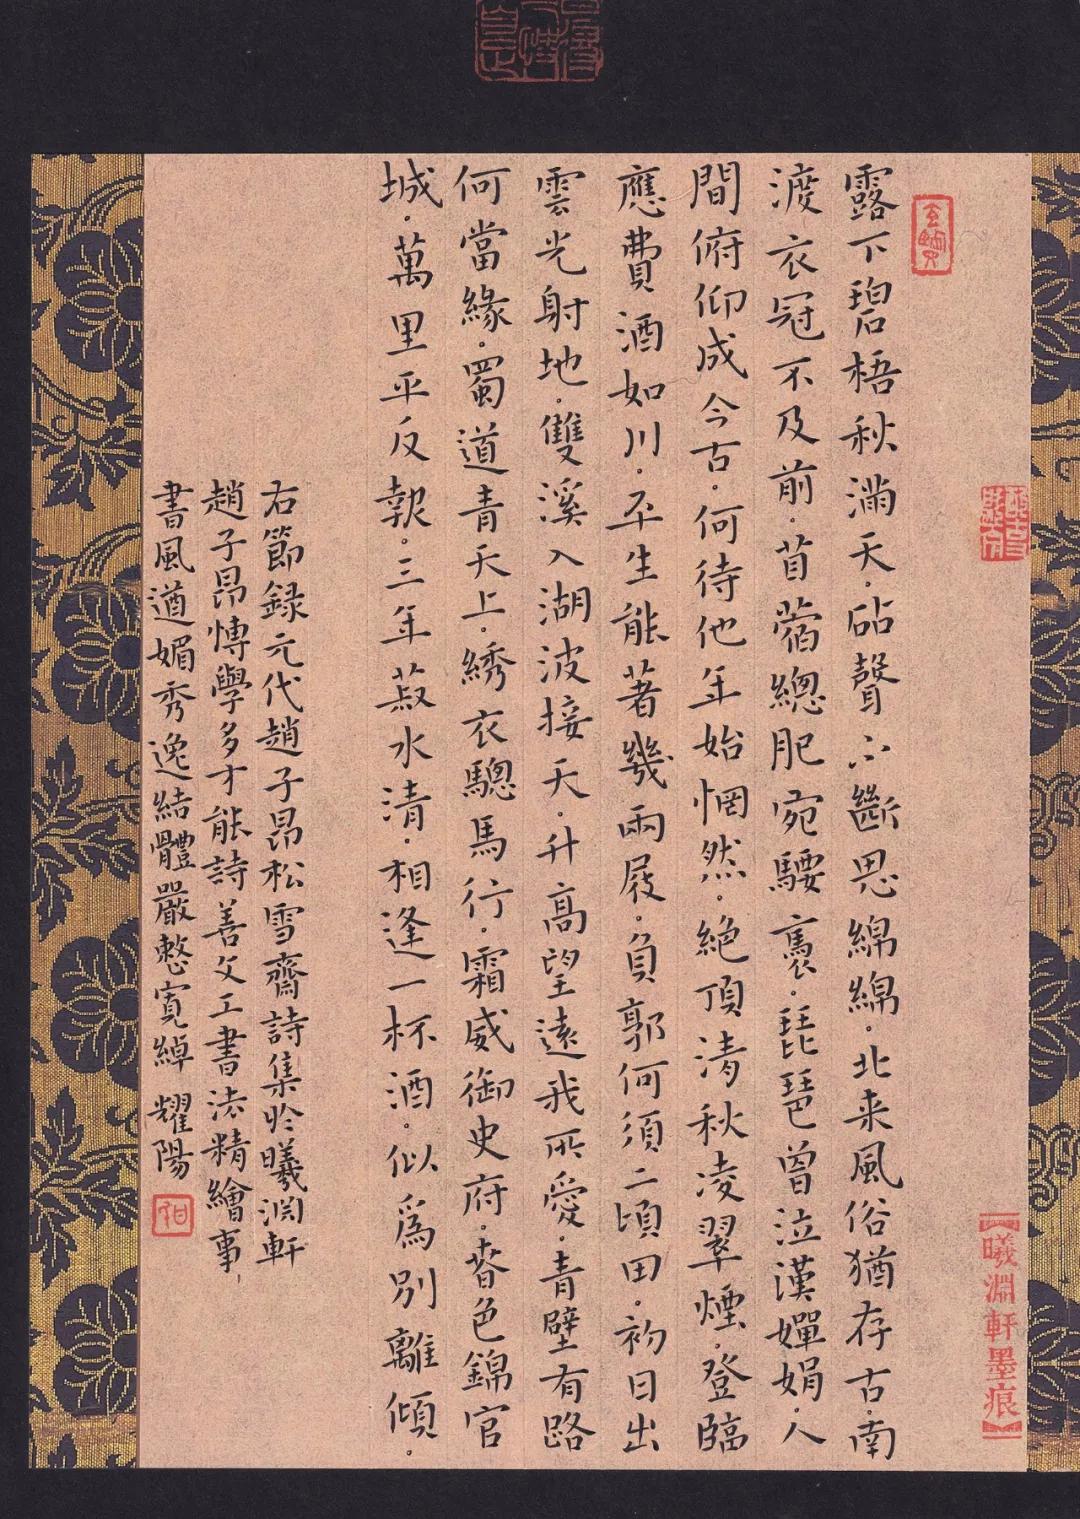 露下碧梧秋滿天。砧聲不斷思綿綿。北來風俗猶存古。南
渡衣冠不及前。苜蓿總肥宛騕褭。琵琶曾泣漢嬋娟。人
間俯仰成今古。何待他年始惘然。絕頂清秋凌翠煙。登臨
應費酒如川。平生能著幾兩屐。負郭何須二頃田。初日出
雲光射地。雙溪入湖波接天。升高望遠我所愛。青壁有路
何當緣。蜀道青天上。綉衣驄馬行。霜威御史府。春色錦官
城。萬里平反報。三年菽水清。相逢一杯酒。似為別離傾。
右節録元代趙子昂松雪齋詩集於曦淵軒
趙子昂博學多才能詩善文工書法精繪事
書風遒媚秀逸結體嚴整寬綽 耀陽
曦淵軒墨痕